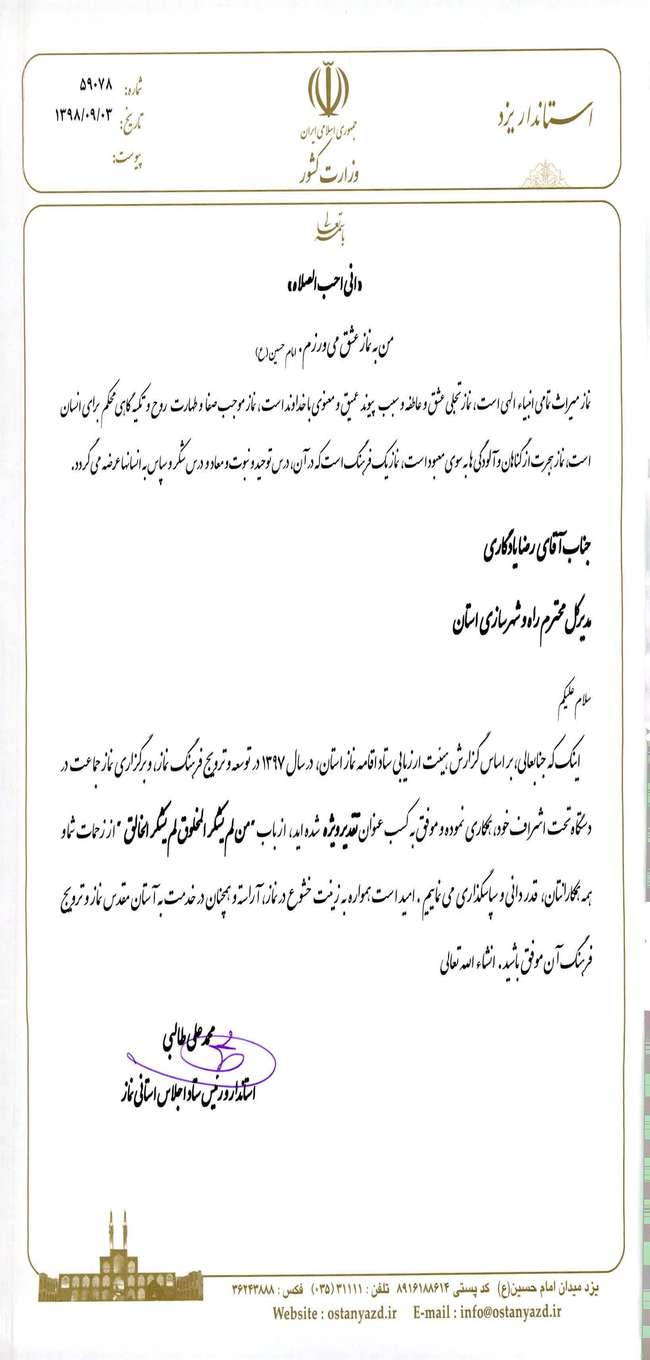 استاندار یزد
جمهوری اسلامی ایران
وزارت کشور
شماره: ۵۹۰۷۸
تاریخ: ۱۳۹۸/۰۹/۰۳
پیوست:
باسمه تعالی
«انی احب الصلاه»
من به نماز عشق می ورزم. امام حسین (ع)
نماز میراث تمامی انبیاء الهی است، نماز تجلی عشق و عاطفه و سبب پیوند عمیق و معنوی با خداوند است، نماز موجب صفا و طهارت روح و تکیه گاهی محکم برای انسان
است، نماز هجرت از گناهان و آلودگی ها به سوی معبود است، نماز یک فرهنگ است که در آن، درس توحید و نبوت و معاد و درس شکر و سپاس به انسانها عرضه می گردد.
جناب آقای رضا یادگاری
مدیرکل محترم راه و شهرسازی استان
سلام علیکم
اینک که جنابعالی، بر اساس گزارش هیئت ارزیابی ستاد اقامه نماز استان، در سال ۱۳۹۷ در توسعه و ترویج فرهنگ نماز، و برگزاری نماز جماعت در
دستگاه تحت اشراف خود، همکاری نموده و موفق به کسب عنوان تقدیر ویژه شده اید، از باب "من لم یشکر المخلوق لم یشکر الخالق" از زحمات شما و
همه همکارانتان، قدردانی و سپاسگذاری می نماییم. امید است همواره به زینت خشوع در نماز، آراسته و همچنان در خدمت به آستان مقدس نماز و ترویج
فرهنگ آن موفق باشید. انشاء الله تعالی
محمد علی طالبی
استاندار و رئیس ستاد اجلاس استانی نماز
یزد میدان امام حسین(ع) کد پستی ۸۹۱۶۱۸۸۶۱۴ تلفن : ۳۱۱۱۱ (۰۳۵) فکس : ۳۶۲۴۳۸۸۸
Website : ostanyazd.ir E-mail : info@ostanyazd.ir